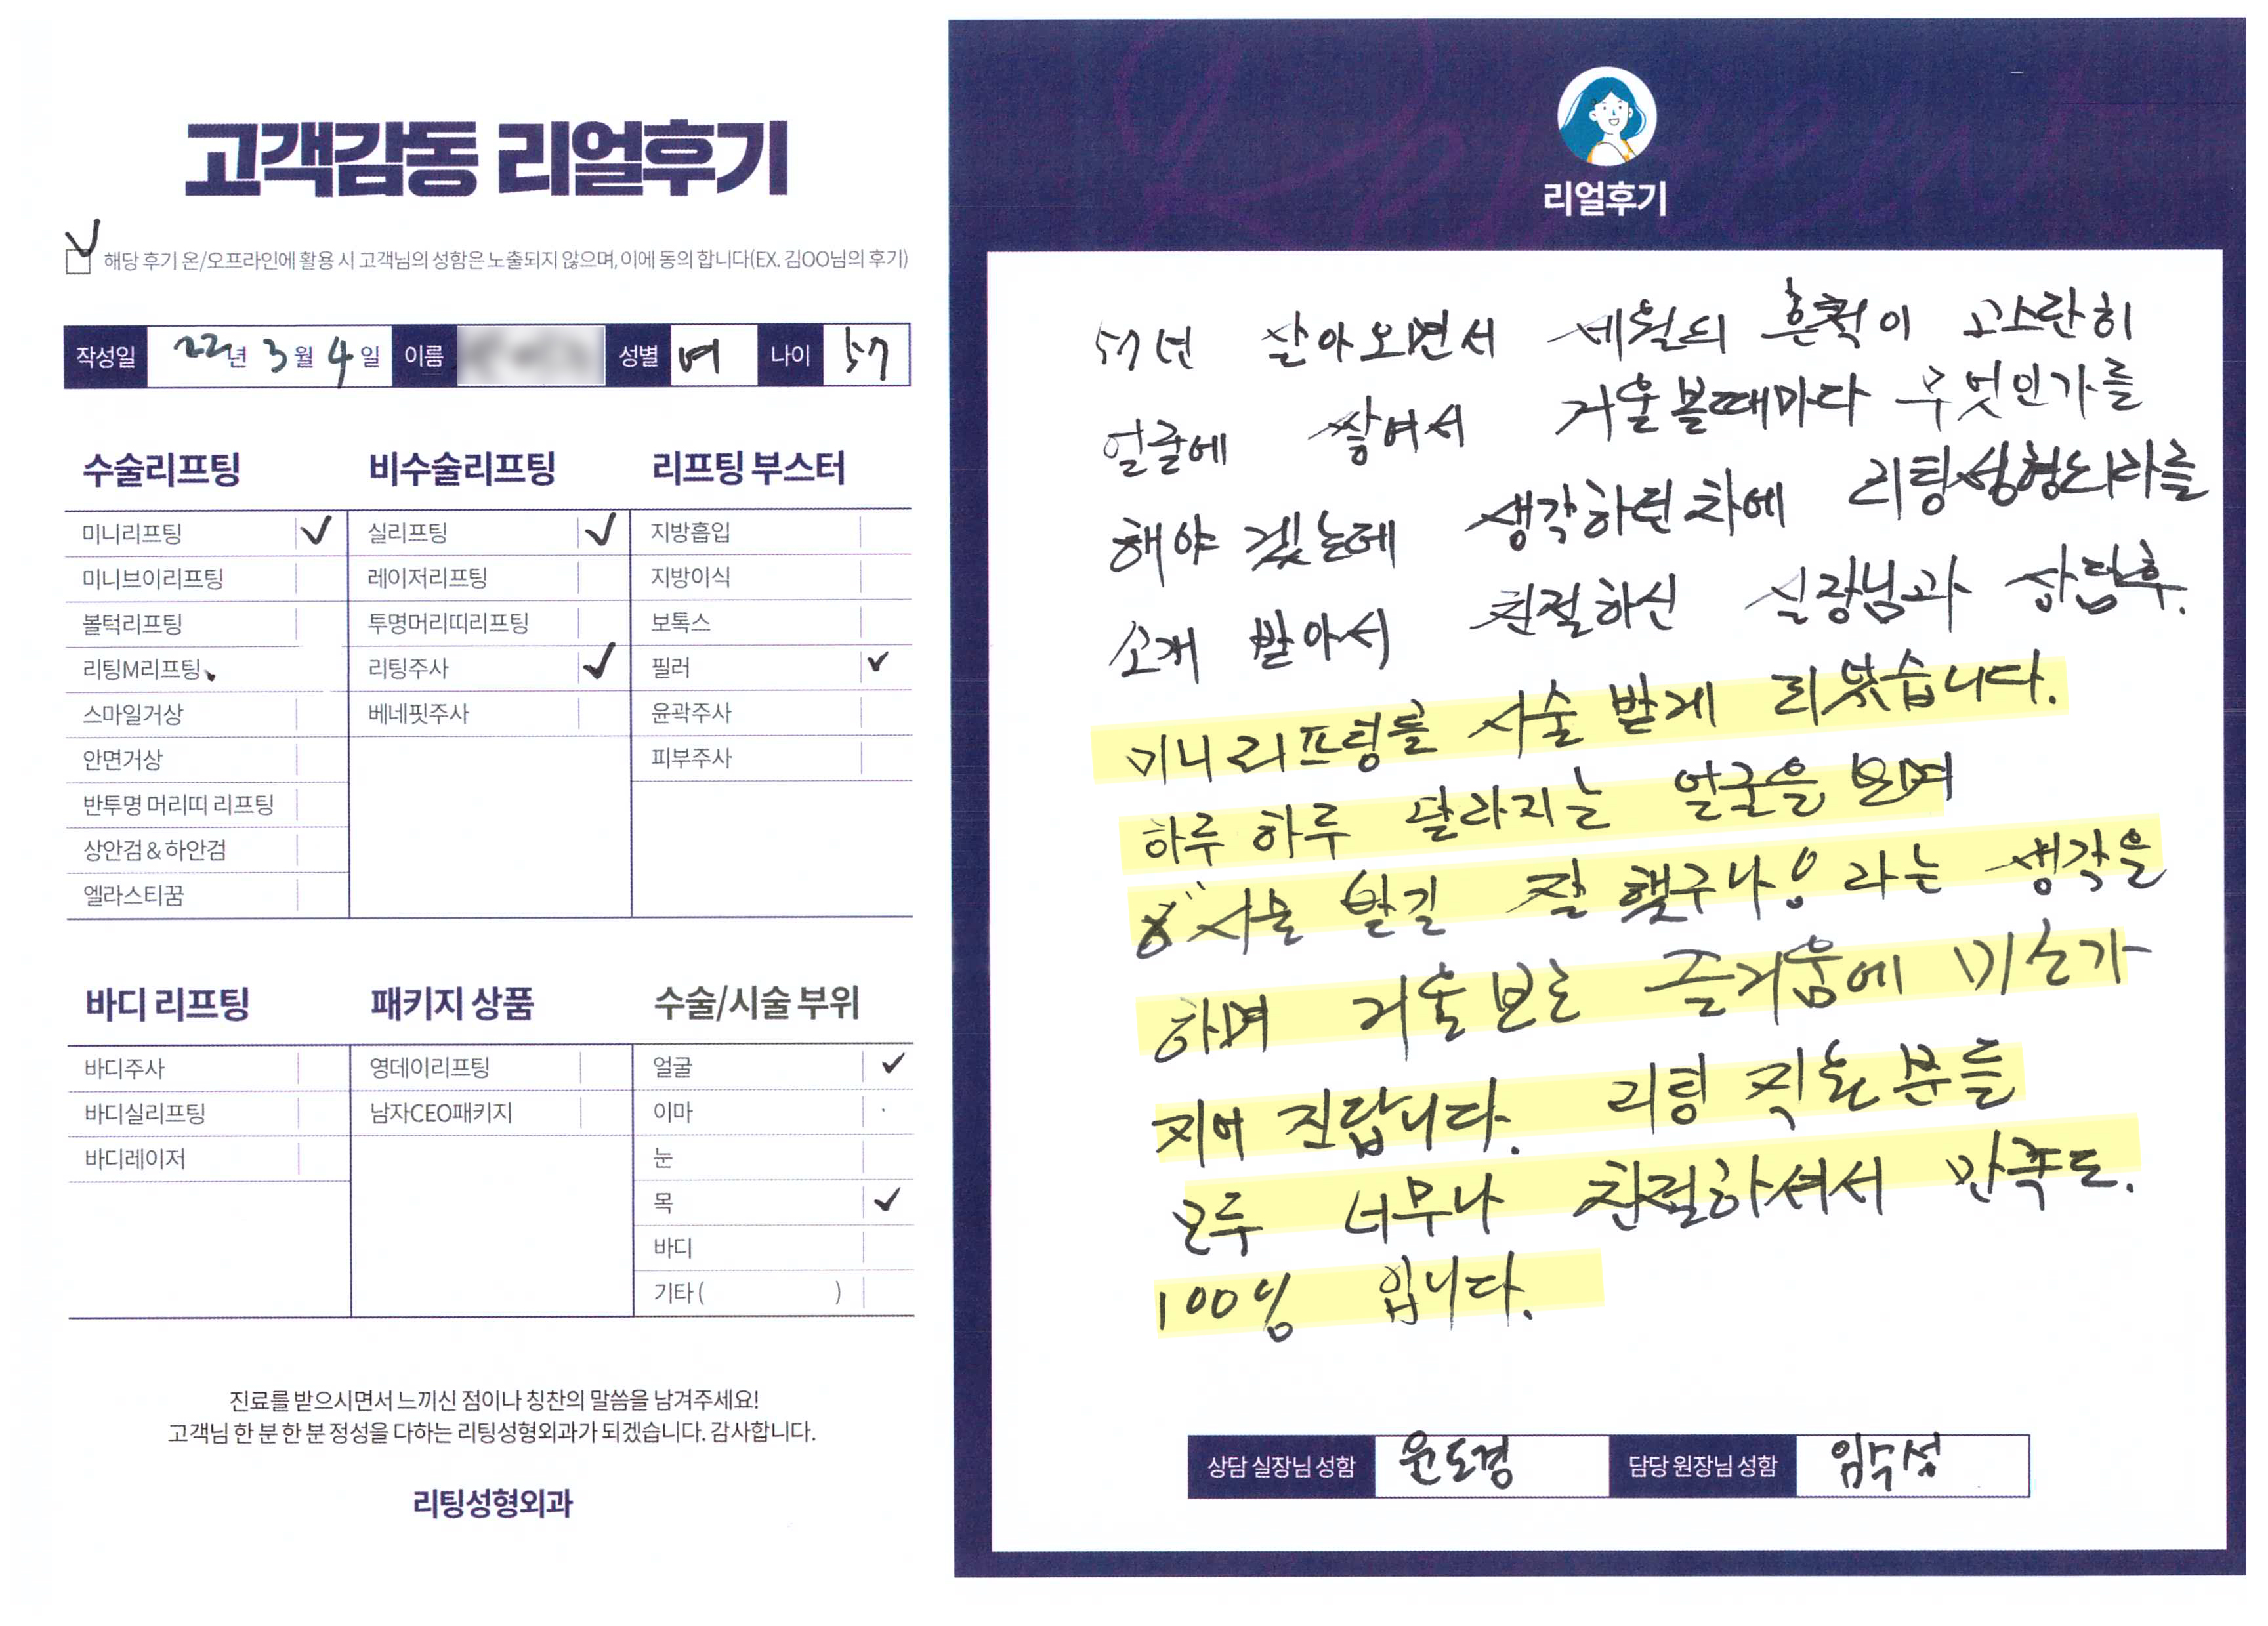 고객감동 리얼후기
해당 후기 온/오프라인에 활용 시 고객님의 성함은 노출되지 않으며, 이에 동의 합니다(EX. 김OO님의 후기)
작성일 22년 3월 4일 이름 성별 여 나이 57
수술리프팅
미니리프팅 ✓
미니브이리프팅
볼턱리프팅
리팅M리프팅
스마일거상
안면거상
반투명 머리띠 리프팅
상안검&하안검
엘라스티꿈
비수술리프팅
실리프팅 ✓
레이저리프팅
투명머리띠리프팅
리팅주사 ✓
베네핏주사
리프팅 부스터
지방흡입
지방이식
보톡스
필러 ✓
윤곽주사
피부주사
바디 리프팅
바디주사
바디실리프팅
바디레이저
패키지 상품
영데이리프팅
남자CEO패키지
수술/시술 부위
얼굴 ✓
이마
눈
목 ✓
바디
기타 ( )
진료를 받으시면서 느끼신 점이나 칭찬의 말씀을 남겨주세요!
고객님 한 분 한 분 정성을 다하는 리팅성형외과가 되겠습니다. 감사합니다.
리팅성형외과
리얼후기
57년 살아오면서 세월의 흔적이 고스란히
얼굴에 쌓여서 거울볼때마다 무엇인가를
해야 겠는데 생각하던차에 리팅성형외과를
소개 받아서 친절하신 실장님과 상담후.
미니리프팅를 시술 받게 되었습니다.
하루 하루 달라지는 얼굴을 보며
"시술 받길 잘 했구나! 라는 생각을
하며 거울보는 즐거움에 미소가
지어 진답니다. 리팅 직원 분들
모두 너무나 친절하셔서 만족도.
100% 입니다.
상담 실장님 성함 윤도경 담당 원장님 성함 임수성